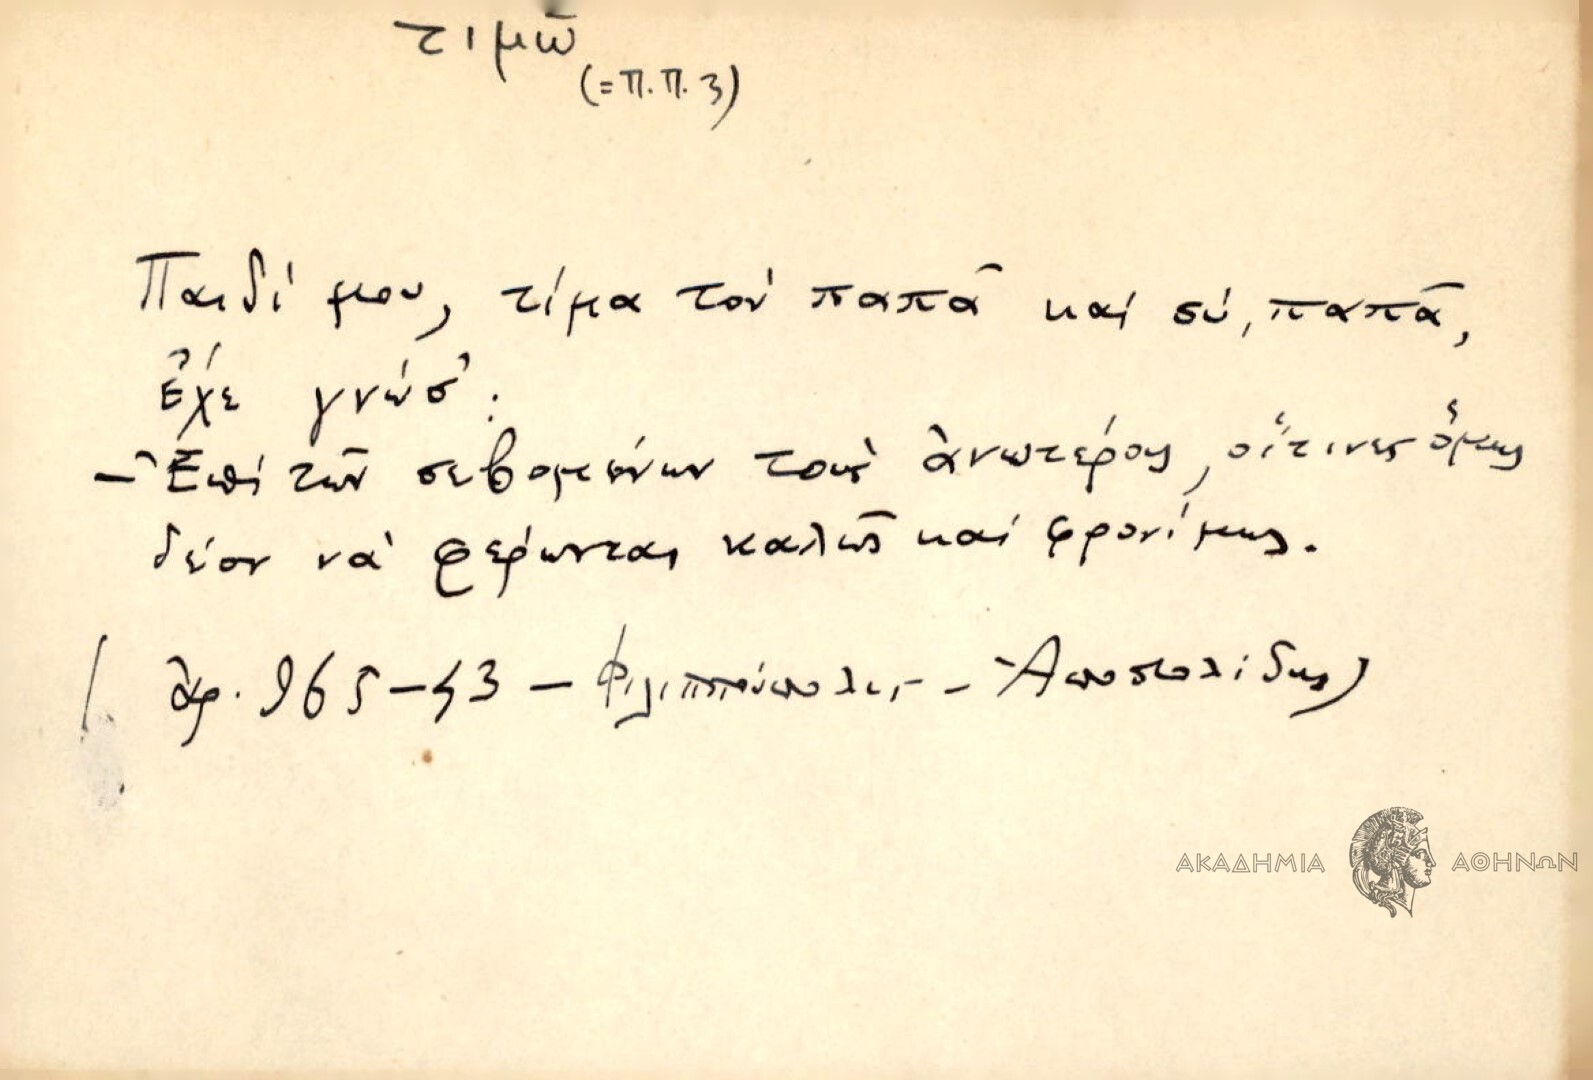 τιμῶ
(=Π.Π. 3)
Παιδί μου, τίμα τόν παπᾶ καί σύ, παπᾶ,
ἔχε γνώσ'.
-Ἐπί τῶν σεβομένων τούς ἀνωτέρους, οἵτινες ὅμως
δέον νά φέρωνται καλῶς καί φρονίμως.
(ἀρ. 965-43 - Φιλιππούπολις - Ἀποστολίδης)
ΑΚΑΔΗΜΙΑ ΑΘΗΝΩΝ